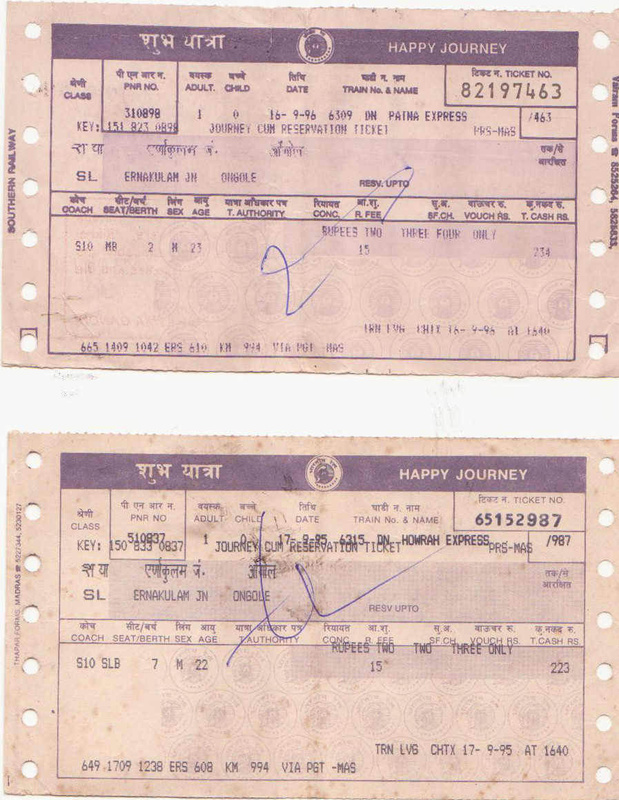 शुभ यात्रा HAPPY JOURNEY
श्रेणी पी एन आर न. वयस्क बच्चे तिथि गाडी न. नाम टिकट न. TICKET NO.
CLASS PNR NO. ADULT. CHILD DATE TRAIN No. & NAME 82197463
310898 1 0 16- 9-96 6309 DN PATNA EXPRESS /463
KEY: 151 823 0898 JOURNEY CUM RESERVATION TICKET PRS-MAS
एर्णाकुलम जं. तक/से
आरक्षित
SL ERNAKULAM JN ONGOLE RESV. UPTO
कोच सीट/बर्थ लिंग आयु यात्रा अधिकार पत्र रियायत आ.शु. सु.अ. वाऊचर रु. कु.नकद रु.
COACH SEAT/BERTH SEX AGE T. AUTHORITY CONC. R. FEE SF.CH. VOUCH RS. T. CASH RS.
RUPEES TWO THREE FOUR ONLY
S10 MB 2 M 23 15 234
TRN LVG CHTX 16- 9-96 AT 1640
665 1409 1042 ERS 610 KM 994 VIA PGT -MAS
SOUTHERN RAILWAY
शुभ यात्रा HAPPY JOURNEY
श्रेणी पी एन आर न. वयस्क बच्चे तिथि गाडी न. नाम टिकट न. TICKET NO.
CLASS PNR NO ADULT CHILD DATE TRAIN No. & NAME 65152987
510837 1 0 17- 9-95 6315 DN HOWRAH EXPRESS /987
KEY: 150 833 0837 JOURNEY CUM RESERVATION TICKET PRS-MAS
एर्णाकुलम जं. ओंगोल तक/से
आरक्षित
SL ERNAKULAM JN ONGOLE RESV UPTO
कोच सीट/बर्थ लिंग आयु यात्रा अधिकार पत्र रियायत आ.शु. सु.अ. वाऊचर रु. कु.नकद रु.
COACH SEAT/BERTH SEX AGE T. AUTHORITY CONC. R. FEE SF.CH. VOUCH RS. T.CASH RS.
RUPEES TWO TWO THREE ONLY
S10 SLB 7 M 22 15 223
TRN LVG CHTX 17- 9-95 AT 1640
649 1709 1238 ERS 608 KM 994 VIA PGT -MAS
THAPAR FORMS, MADRAS